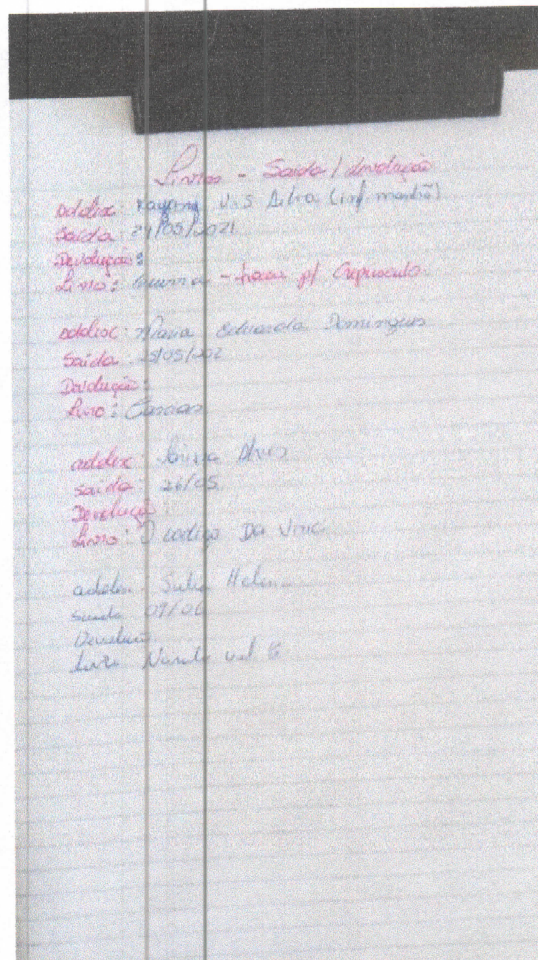 Livros - Saída / devolução
adolesc: V. S. Silva (inf. manhã)
Saída: 24/05/2021
Devolução:
Livro: - trocar p/ Crepusculo
adolesc: Maria Eduarda Domingues
Saída: 25/05/202
Devolução:
Livro:
adolesc: Alves
saída: 26/05
Devolução:
Livro: O codigo Da Vinci
adolesc: Helena
saida 07/06
Devolução
Livro Naruto vol